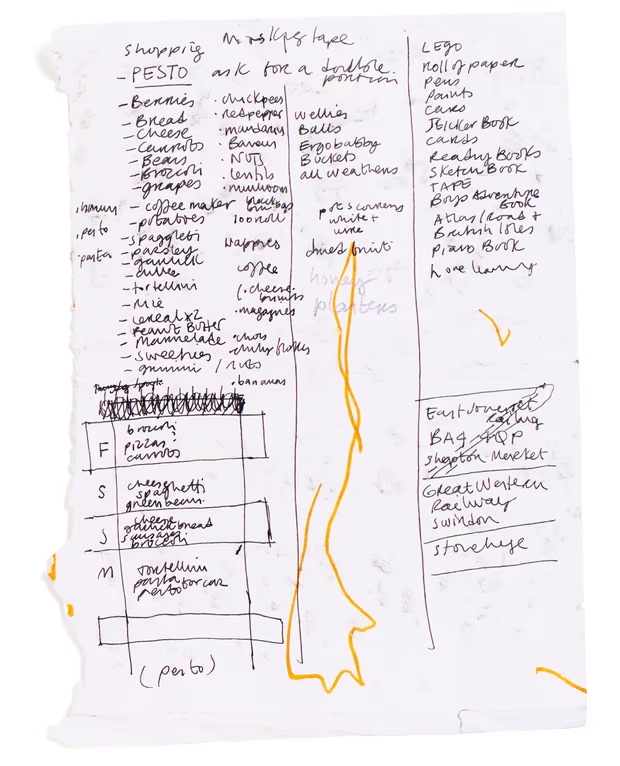 shopping
Maskingtape
- PESTO ask for a double portion
- Berries
- Bread
- Cheese
- Carrots
- Beans
- Brocoli
- grapes
- coffee maker
- potatoes
- spaggleti
- parsley
- tortellini
- Rice
- cereal x2
- Peanut Butter
- Marmelade
- sweeties
- gummi / nuts
. humus
. pesto
. pasta
. chickpees
. redpepper
. mandarins
. Banans
. NUTS
. lentils
. mushroom
black bin bags
looroll
wappies
coffee
(. cheese.
biscuits
. magazines
. bananas
wellies
Balls
Ergobabby
Buckets
all weathers
white +
wine
dried fruit
honey
plasters
LEGO
roll of paper
pens
paints
cars
Sticker Book
cards
Reading Books
Sketch Book
TAPE
Boys Adventure
Book
Atlas / Road +
British Isles
Piano Book
home learning
F
brocoli
pizzas
carrots
S
cheese
spaghetti
green beans
S
cheese
garlick bread
sausages
broccoli
M
Tortellini
pasta for car
pesto
(pesto)
East Somerset
Railway
BA4 4QP
Shepton Merket
Great Western
Railway
Swindon
stonehege